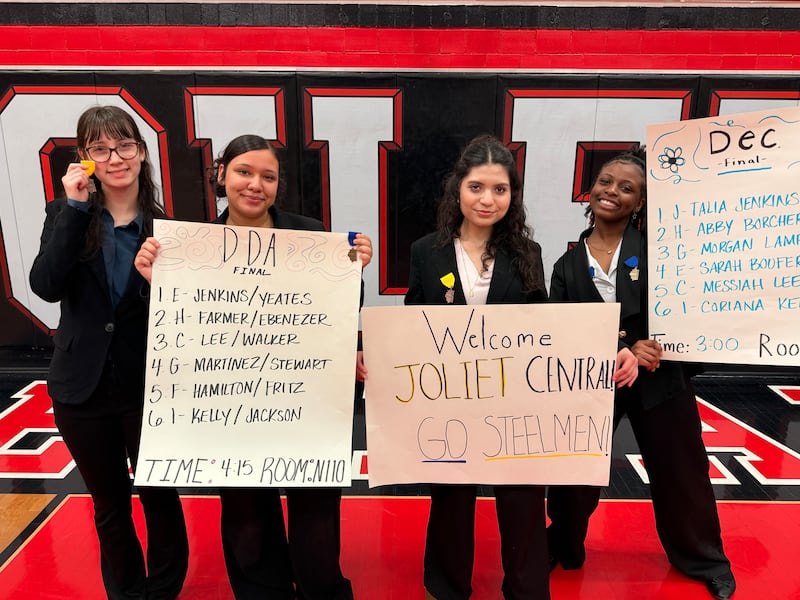 DDA
FINAL
1. E- JENKINS/YEATES
2. H- FARMER/EBENEZER
3. C- LEE/WALKER
4 G- MARTINEZ/STEWART
5. F- HAMILTON/FRITZ
6. I- KELLY/JACKSON
TIME: 4:15 ROOM: N110
Welcome
JOLIET CENTRAL!
GO STEELMEN!
Dec.
-Final-
1 J-TALIA JENKINS
2 H- ABBY BORCHER
3 G- MORGAN LAMP
4 E- SARAH BOOFER
5 C- MESSIAH LEE
6 I- CORIANA KE
Time: 3:00 Roo